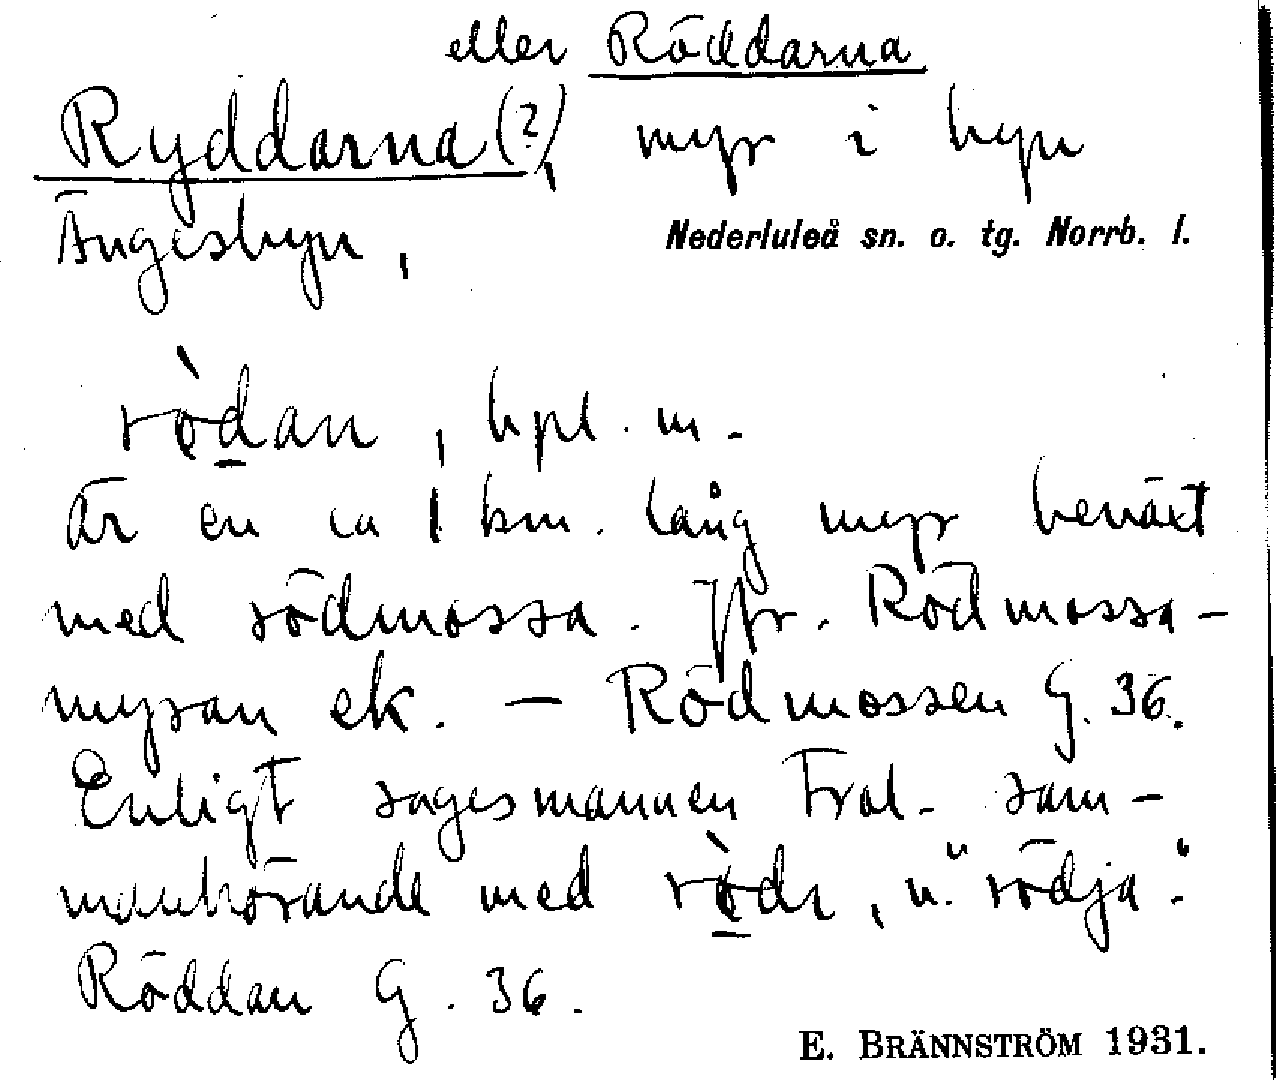 eller Röddarna
Ryddarna (?), myr i byn
Ängesbyn, Nederluleå sn. o. tg. Norrb. l.
rödan, bpl. m.
Är en ca 1 km. lång myr beväxt
med rödmossa. Jfr. Rödmossa-
myran ek. — Rödmossen G. 36.
Enligt sagesmannen Trol. sam-
manhörande med n. "rödja".
Röddan G. 36.
E. BRÄNNSTRÖM 1931.